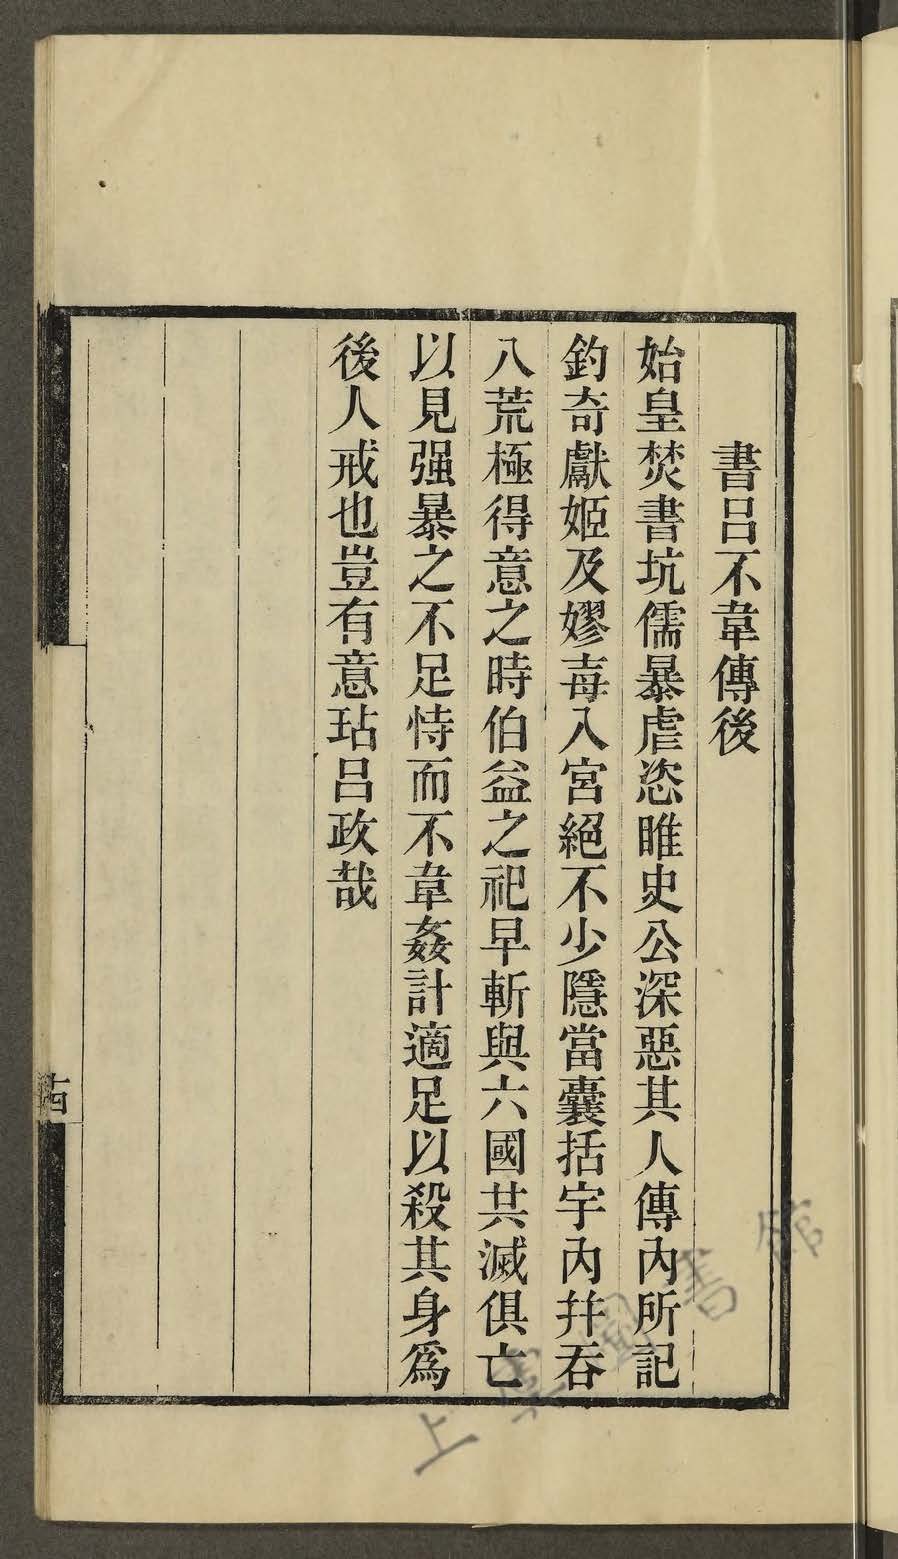 書呂不韋傳後
始皇焚書坑儒暴虐恣睢史公深惡其人傳內所記
釣奇獻姬及嫪毐入宮絕不少隱當囊括宇內幷吞
八荒極得意之時伯益之祀早斬與六國共滅俱亡
以見强暴之不足恃而不韋姦計適足以殺其身爲
後人戒也豈有意玷呂政哉
十四
上虞圖書館